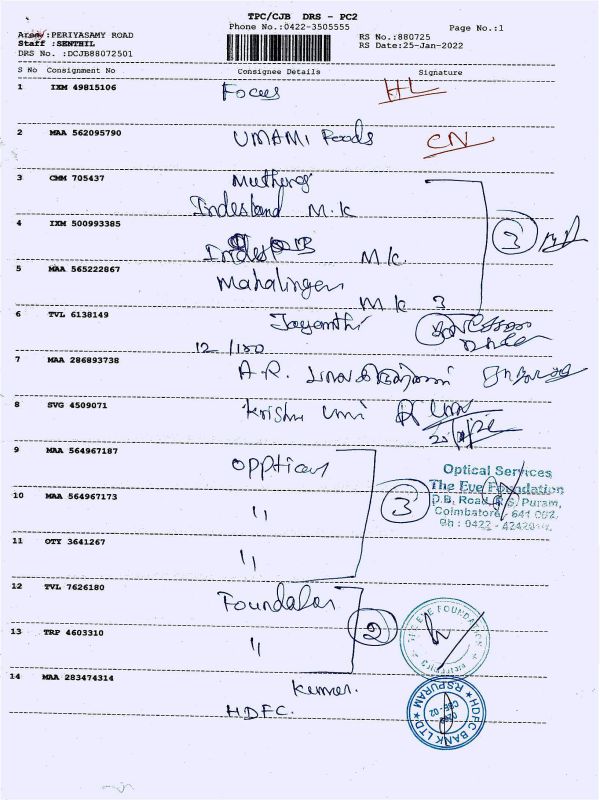 TPC/CJB DRS - PC2
Phone No.:0422-3505555
Page No.:1
Area :PERIYASAMY ROAD
RS No.:880725
Staff :SENTHIL
RS Date:25-Jan-2022
DRS No. :DCJB88072501
S No Consignment No Consignee Details Signature
1 IXM 49815106 Focus HL
2 MAA 562095790 UMAMI Foods CN
3 CMM 705437
M.K
4 IXM 500993385
M.K.
5 MAA 565222867 Mahalingam
M K 3
6 TVL 6138149 Jayanthi
12/150
7 MAA 286893738 A.R.
8 SVG 4509071 Krishna
9 MAA 564967187
Optical Services
The Eye Foundation
D.B. Road, R.S. Puram,
10 MAA 564967173 " 3
Coimbatore - 641 002.
Ph : 0422 -
11 OTY 3641267 "
12 TVL 7626180 Foundation
THE EYE FOUNDATION
13 TRP 4603310 " 2
14 MAA 283474314 Kumar.
HDFC.
HDFC BANK LTD ★ RSPURAM ★
CBE-02